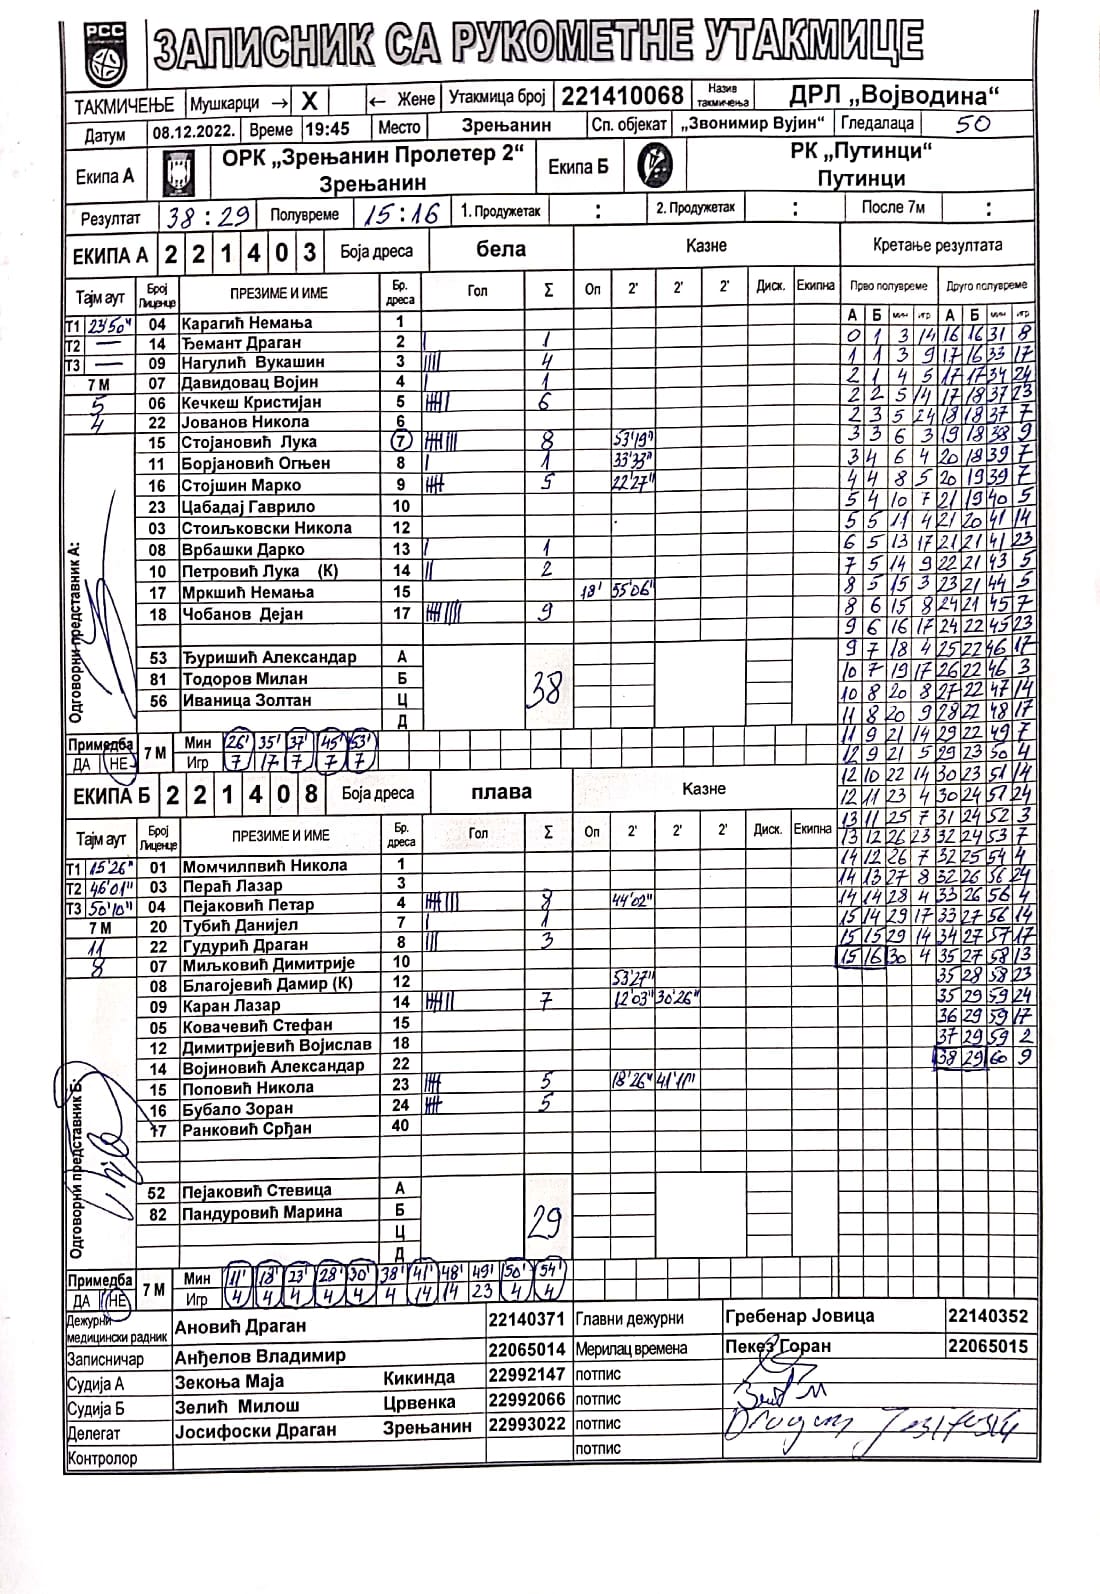 РСС
ЗАПИСНИК СА РУКОМЕТНЕ УТАКМИЦЕ
ТАКМИЧЕЊЕ Мушкарци → X ← Жене Утакмица број 221410068 Назив такмичења ДРЛ „Војводина“
Датум 08.12.2022. Време 19:45 Место Зрењанин Сп. објекат „Звонимир Вујин“ Гледалаца 50
Екипа А ОРК „Зрењанин Пролетер 2“ Зрењанин Екипа Б РК „Путинци“ Путинци
Резултат 38:29 Полувреме 15:16 1. Продужетак : 2. Продужетак : После 7м :
ЕКИПА А 2 2 1 4 0 3 Боја дреса бела Казне Кретање резултата
Тајм аут Број Лиценце ПРЕЗИМЕ И ИМЕ Бр. дреса Гол Σ Оп 2' 2' 2' Диск. Екипна Прво полувреме Друго полувреме
А Б мин игр А Б мин игр
Т1 23'50" 04 Карагић Немања 1
Т2 — 14 Ђемант Драган 2 | 1
Т3 — 09 Нагулић Вукашин 3 |||| 4
7 М 07 Давидовац Војин 4 | 1
5 06 Кечкеш Кристијан 5 6
4 22 Јованов Никола 6
15 Стојановић Лука 7 8 53'19"
11 Борјановић Огњен 8 | 1 33'33"
16 Стојшин Марко 9 5 22'27"
23 Цабадај Гаврило 10
03 Стоиљковски Никола 12
08 Врбашки Дарко 13 | 1
10 Петровић Лука (К) 14 || 2
17 Мркшић Немања 15 18' 55'06"
18 Чобанов Дејан 17 9
53 Ђуришић Александар А
81 Тодоров Милан Б
56 Иваница Золтан Ц
Д
38
Одговорни представник А:
0 1 3 14 16 16 31 8
1 1 3 9 17 16 33 17
2 1 4 5 17 17 34 24
2 2 5 14 17 18 37 23
2 3 5 24 18 18 37 7
3 3 6 3 19 18 38 9
3 4 6 4 20 18 39 7
4 4 8 5 20 19 39 7
5 4 10 7 21 19 40 5
5 5 11 4 21 20 41 14
6 5 13 17 21 21 41 23
7 5 14 9 22 21 43 5
8 5 15 3 23 21 44 5
8 6 15 8 24 21 45 7
9 6 16 17 24 22 45 23
9 7 18 4 25 22 46 17
10 7 19 17 26 22 46 3
10 8 20 8 27 22 47 14
11 8 20 9 28 22 48 17
11 9 21 14 29 22 49 7
12 9 21 5 29 23 50 4
12 10 22 14 30 23 51 14
12 11 23 4 30 24 51 24
13 11 25 7 31 24 52 3
13 12 26 23 32 24 53 7
14 12 26 7 32 25 54 4
14 13 27 8 32 26 56 24
14 14 28 4 33 26 56 4
15 14 29 17 33 27 56 14
15 15 29 14 34 27 57 17
15 16 30 4 35 27 58 13
35 28 58 23
35 29 59 24
36 29 59 17
37 29 59 2
38 29 60 9
Примедба ДА НЕ 7 М Мин 26' 35' 37' 45' 53'
Игр 7 17 7 7 7
ЕКИПА Б 2 2 1 4 0 8 Боја дреса плава Казне
Тајм аут Број Лиценце ПРЕЗИМЕ И ИМЕ Бр. дреса Гол Σ Оп 2' 2' 2' Диск. Екипна
Т1 15'26" 01 Момчилпвић Никола 1
Т2 46'01" 03 Пераћ Лазар 3
Т3 50'10" 04 Пејаковић Петар 4 8 44'02"
7 М 20 Тубић Данијел 7 | 1
11 22 Гудурић Драган 8 ||| 3
8 07 Миљковић Димитрије 10
08 Благојевић Дамир (К) 12 53'27"
09 Каран Лазар 14 7 12'03" 30'26"
05 Ковачевић Стефан 15
12 Димитријевић Војислав 18
14 Војиновић Александар 22
15 Поповић Никола 23 5 18'26" 41'11"
16 Бубало Зоран 24 5
17 Ранковић Срђан 40
52 Пејаковић Стевица А
82 Пандуровић Марина Б
Ц
Д
29
Одговорни представник Б:
Примедба ДА НЕ 7 М Мин 11' 18' 23' 28' 30' 38' 41' 48' 49' 50' 54'
Игр 4 4 4 4 4 4 14 14 23 4 4
Дежурни медицински радник Ановић Драган 22140371 Главни дежурни Гребенар Јовица 22140352
Записничар Анђелов Владимир 22065014 Мерилац времена Пекез Горан 22065015
Судија А Зекоња Маја Кикинда 22992147 потпис
Судија Б Зелић Милош Црвенка 22992066 потпис
Делегат Јосифоски Драган Зрењанин 22993022 потпис
Контролор потпис